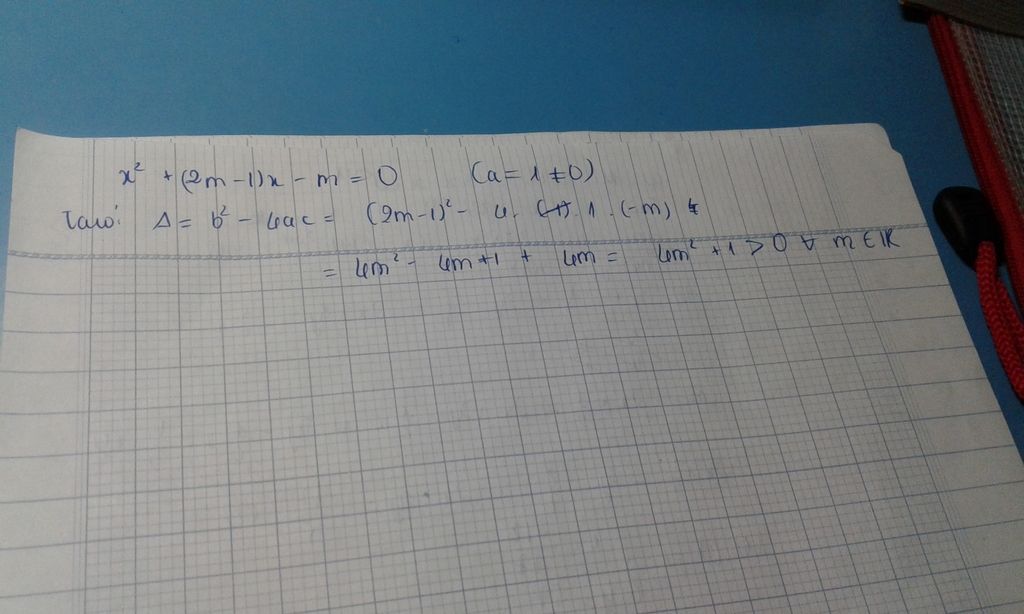 x² + (2m - 1)x - m = 0 (a = 1 ≠ 0)
Ta có: Δ = b² - 4ac = (2m - 1)² - 4. 1 . (-m)
= 4m² - 4m + 1 + 4m = 4m² + 1 > 0 ∀ m ∈ ℝ